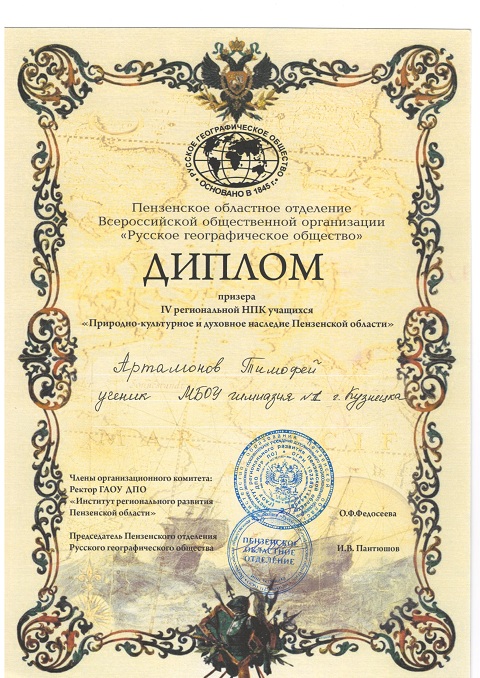 РУССКОЕ ГЕОГРАФИЧЕСКОЕ ОБЩЕСТВО
• ОСНОВАНО В 1845 г. •
Пензенское областное отделение
Всероссийской общественной организации
«Русское географическое общество»
ДИПЛОМ
призера
IV региональной НПК учащихся
«Природно-культурное и духовное наследие Пензенской области»
Артамонов Тимофей
ученик МБОУ гимназия №1 г. Кузнецка
Члены организационного комитета:
Ректор ГАОУ ДПО
«Институт регионального развития
Пензенской области»
О.Ф.Федосеева
Председатель Пензенского отделения
Русского географического общества
И.В. Пантюшов
ПЕНЗЕНСКОЕ
ОБЛАСТНОЕ
ОТДЕЛЕНИЕ